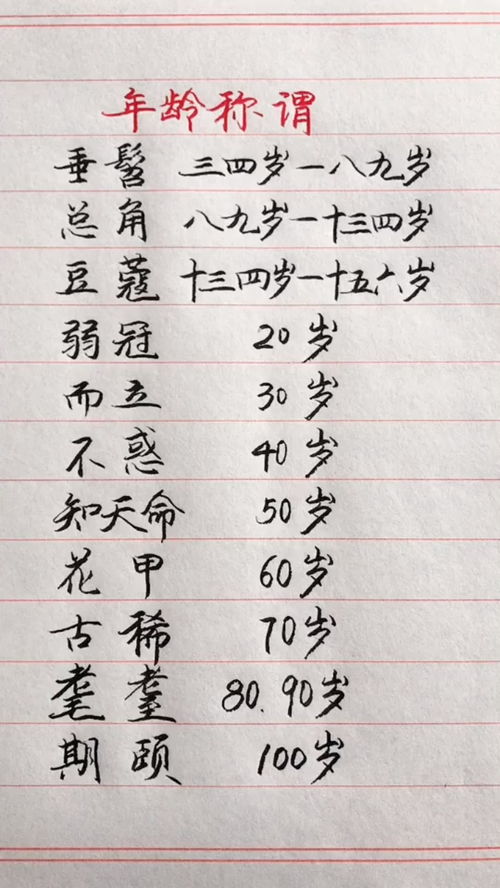 年龄称谓
垂髫 三四岁一八九岁
总角 八九岁一十三四岁
豆蔻 十三四岁一十五六岁
弱冠 20岁
而立 30岁
不惑 40岁
知天命 50岁
花甲 60岁
古稀 70岁
耄耋 80.90岁
期颐 100岁